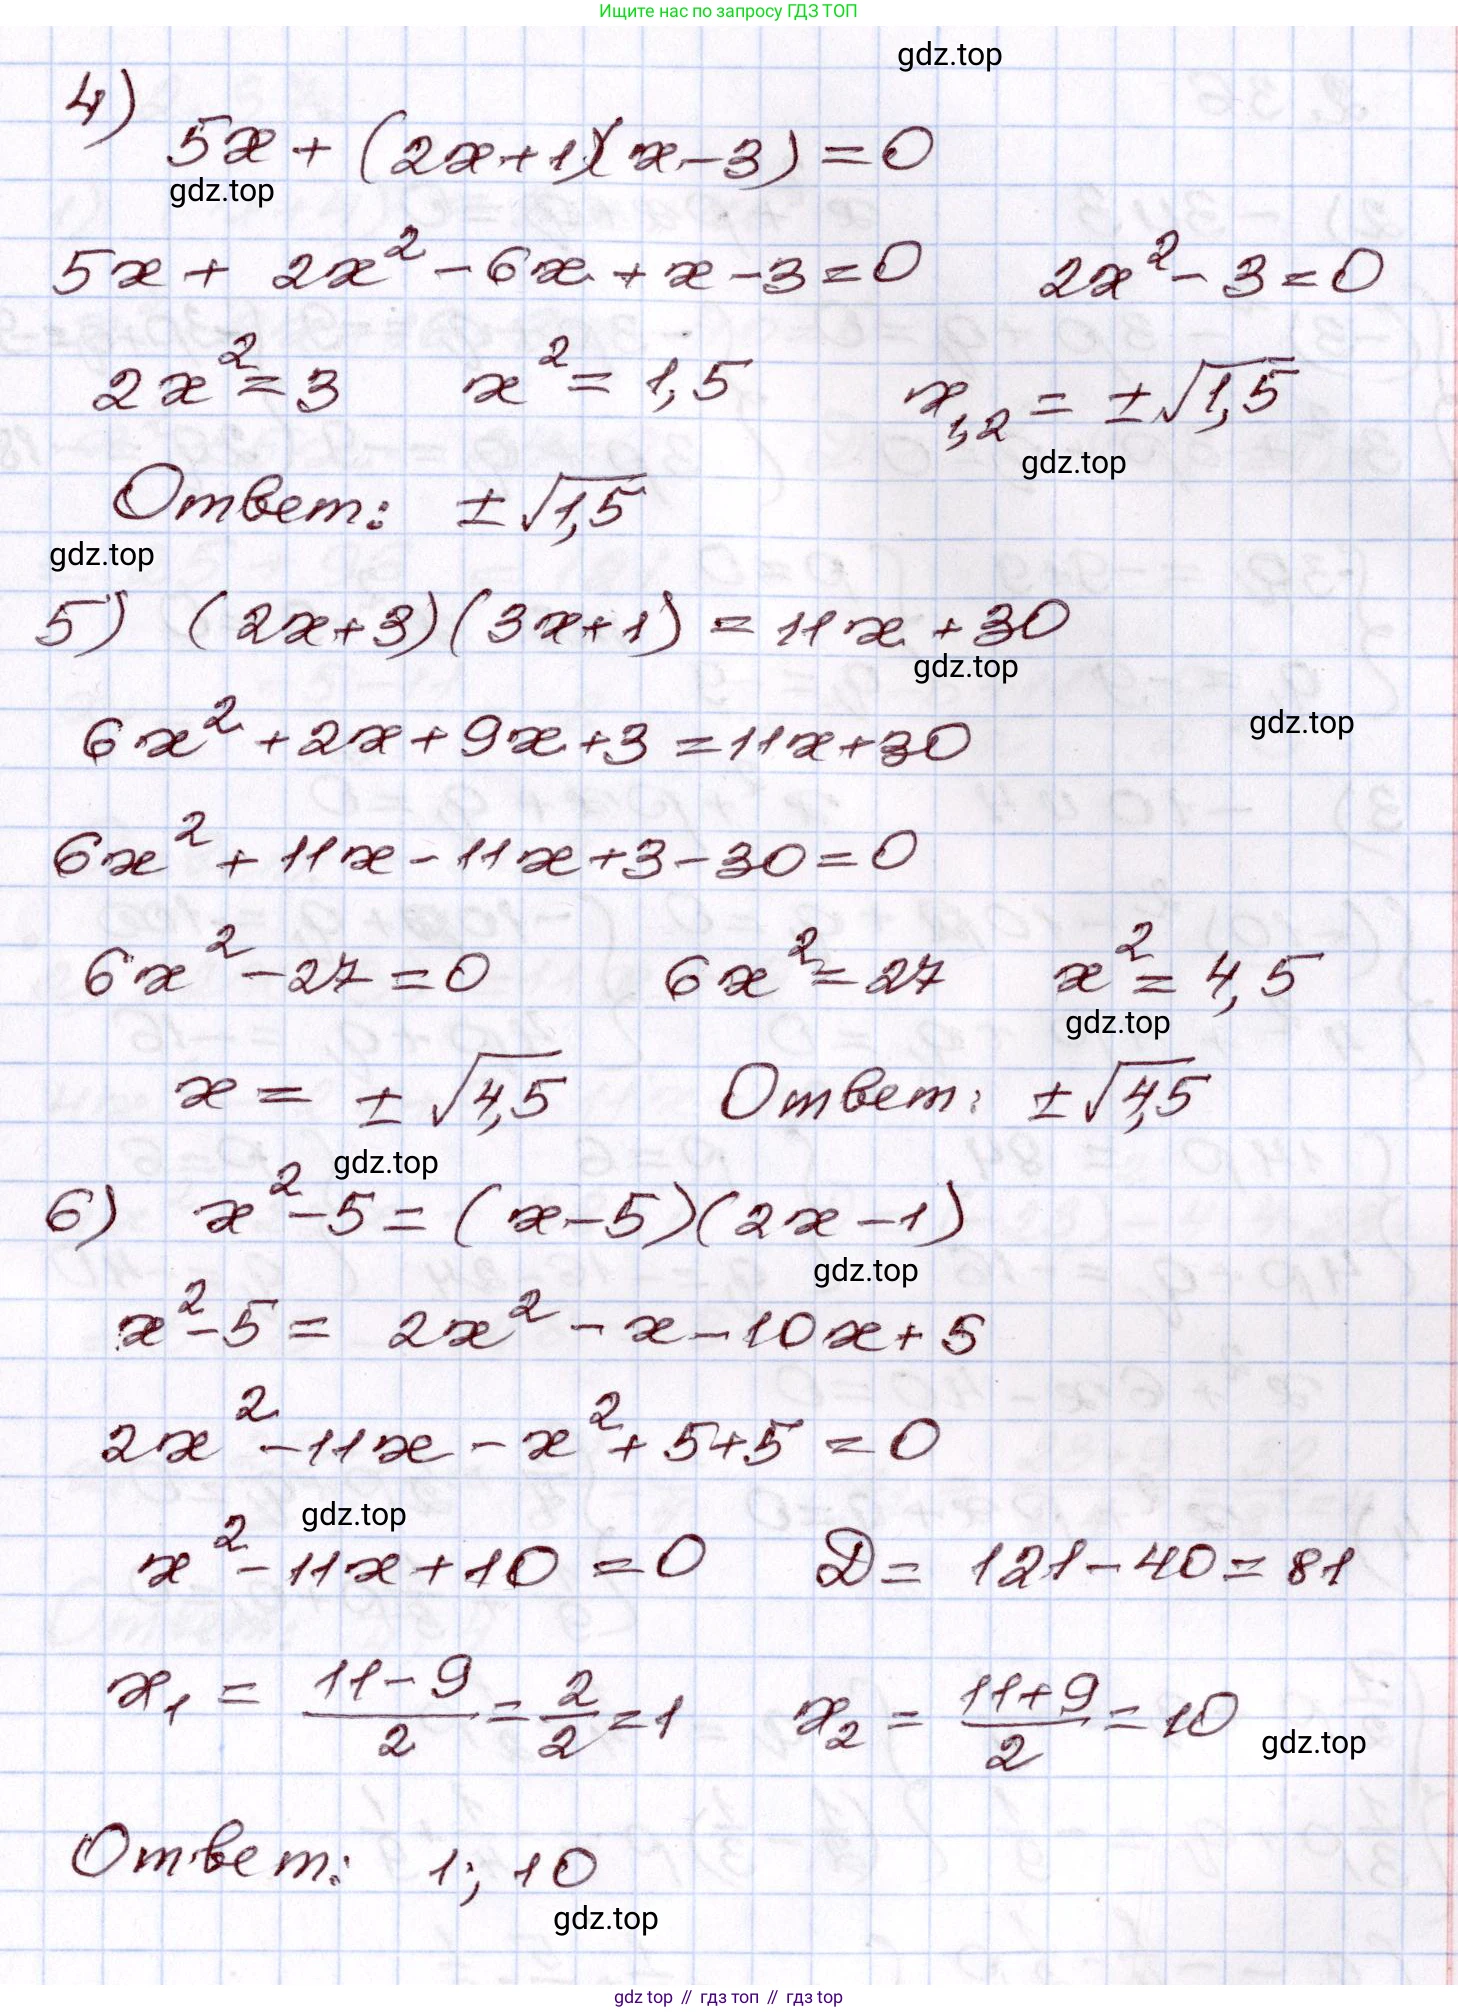 Ищите нас по запросу ГДЗ ТОП
gdz.top
4)
5x + (2x+1)(x-3) = 0
gdz.top
5x + 2x² - 6x + x - 3 = 0 2x² - 3 = 0
2x² = 3 x² = 1,5 x₁,₂ = ±√1,5
gdz.top
Ответ: ±√1,5
gdz.top
5) (2x+3)(3x+1) = 11x + 30
gdz.top
gdz.top
6x² + 2x + 9x + 3 = 11x + 30
6x² + 11x - 11x + 3 - 30 = 0
6x² - 27 = 0 6x² = 27 x² = 4,5
gdz.top
x = ±√4,5 Ответ: ±√4,5
gdz.top
6) x² - 5 = (x-5)(2x-1)
gdz.top
x² - 5 = 2x² - x - 10x + 5
2x² - 11x - x² + 5 + 5 = 0
gdz.top
x² - 11x + 10 = 0 D = 121 - 40 = 81
x₁ = (11-9)/2 = 2/2 = 1 x₂ = (11+9)/2 = 10
gdz.top
Ответ: 1; 10
gdz.top
gdz top // гдз топ // гдз top